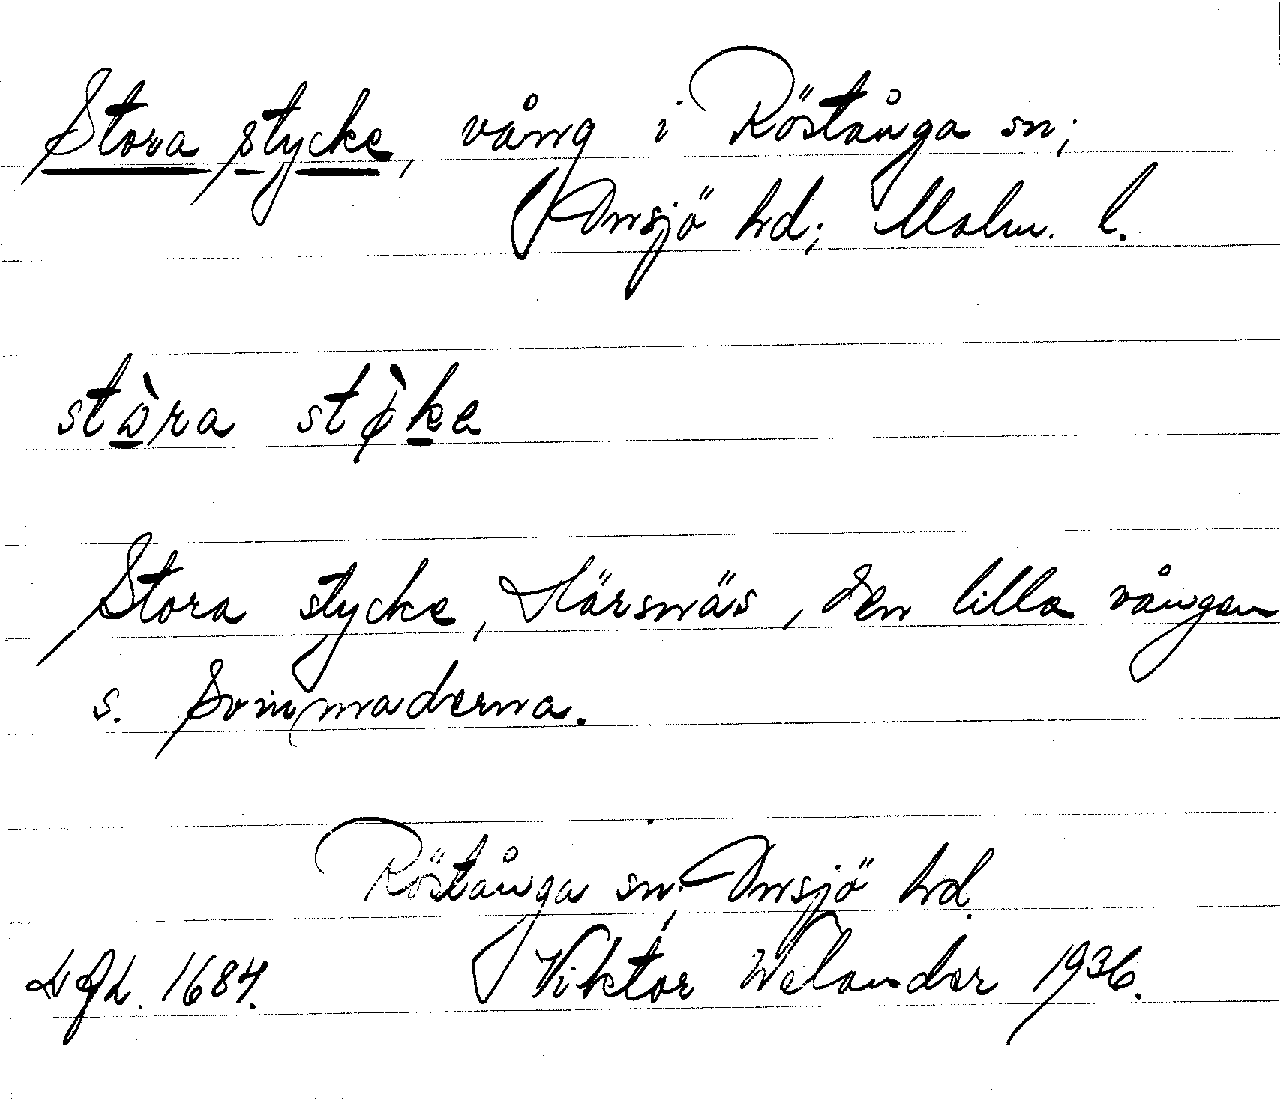 Stora stycke, vång i Röstånga sn;
Onsjö hd; Malm. l.
stòra stø̀ke
Stora stycke, Härsnäs, den lilla vången
s. Sommaderna.
Röstånga sn, Onsjö hd.
1684. Viktor Welander 1936.